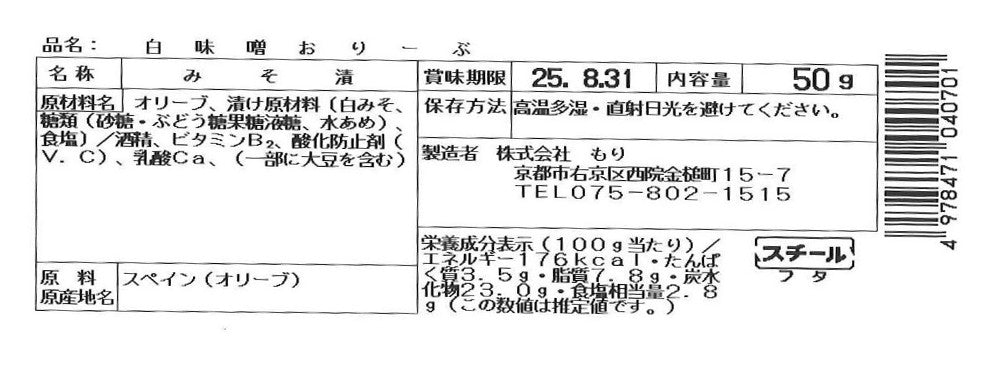 品名: 白味噌おりーぶ
名称 みそ漬 賞味期限 25. 8.31 内容量 50g
原材料名 オリーブ、漬け原材料(白みそ、
糖類(砂糖・ぶどう糖果糖液糖、水あめ)、
食塩)/酒精、ビタミンB₂、酸化防止剤(
V.C)、乳酸Ca、(一部に大豆を含む)
保存方法 高温多湿・直射日光を避けてください。
製造者 株式会社 もり
京都市右京区西院金槌町15-7
TEL075-802-1515
原料
原産地名 スペイン(オリーブ)
栄養成分表示(100g当たり)/
エネルギー176kcal・たんぱ
く質3.5g・脂質7.8g・炭水
化物23.0g・食塩相当量2.8
g(この数値は推定値です。)
スチール
フタ
4 978471 040701